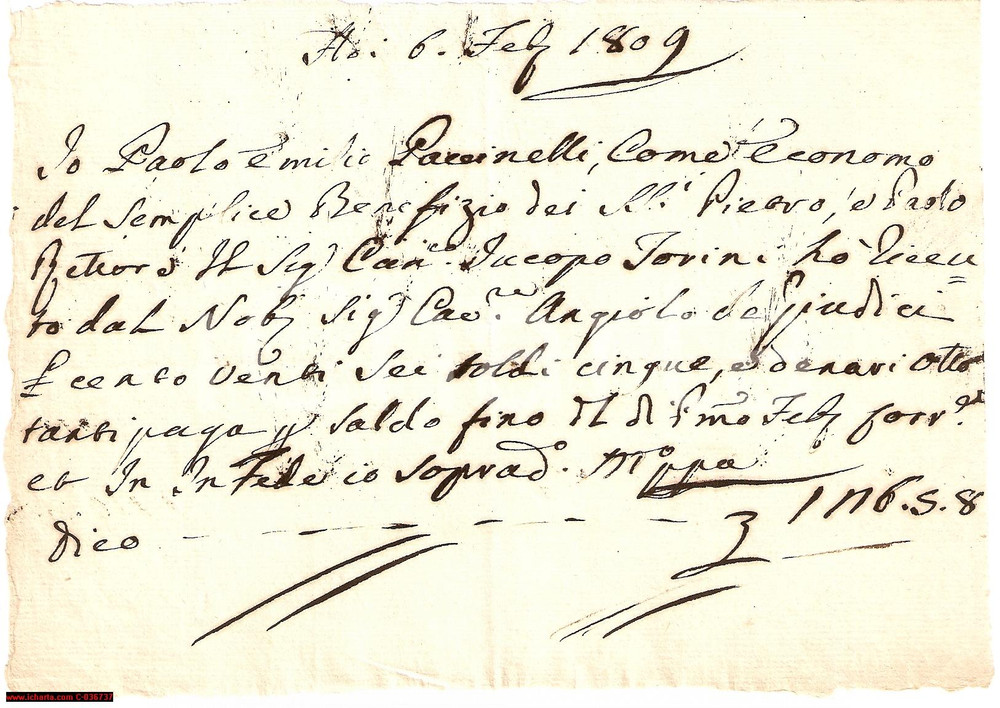 Ado: 6. Feb 1809
Io Paolo Emilio Paccinelli, Come Economo
del Semplice Benefizio dei SS.i Pietro, e Paolo
Rettore Il Sig Can.co Jacopo Torini hò riceu=
to dal Nob Sig Cav.re Angiolo de Giudici
£ cento venti sei soldi cinque, e denari Otto
tanti paga p saldo fino al di P.mo Feb corr.e
et In In Fede io soprad.o M.o ppa
Dico — — — — — — £ 126.5.8
www.icharta.com C-036737